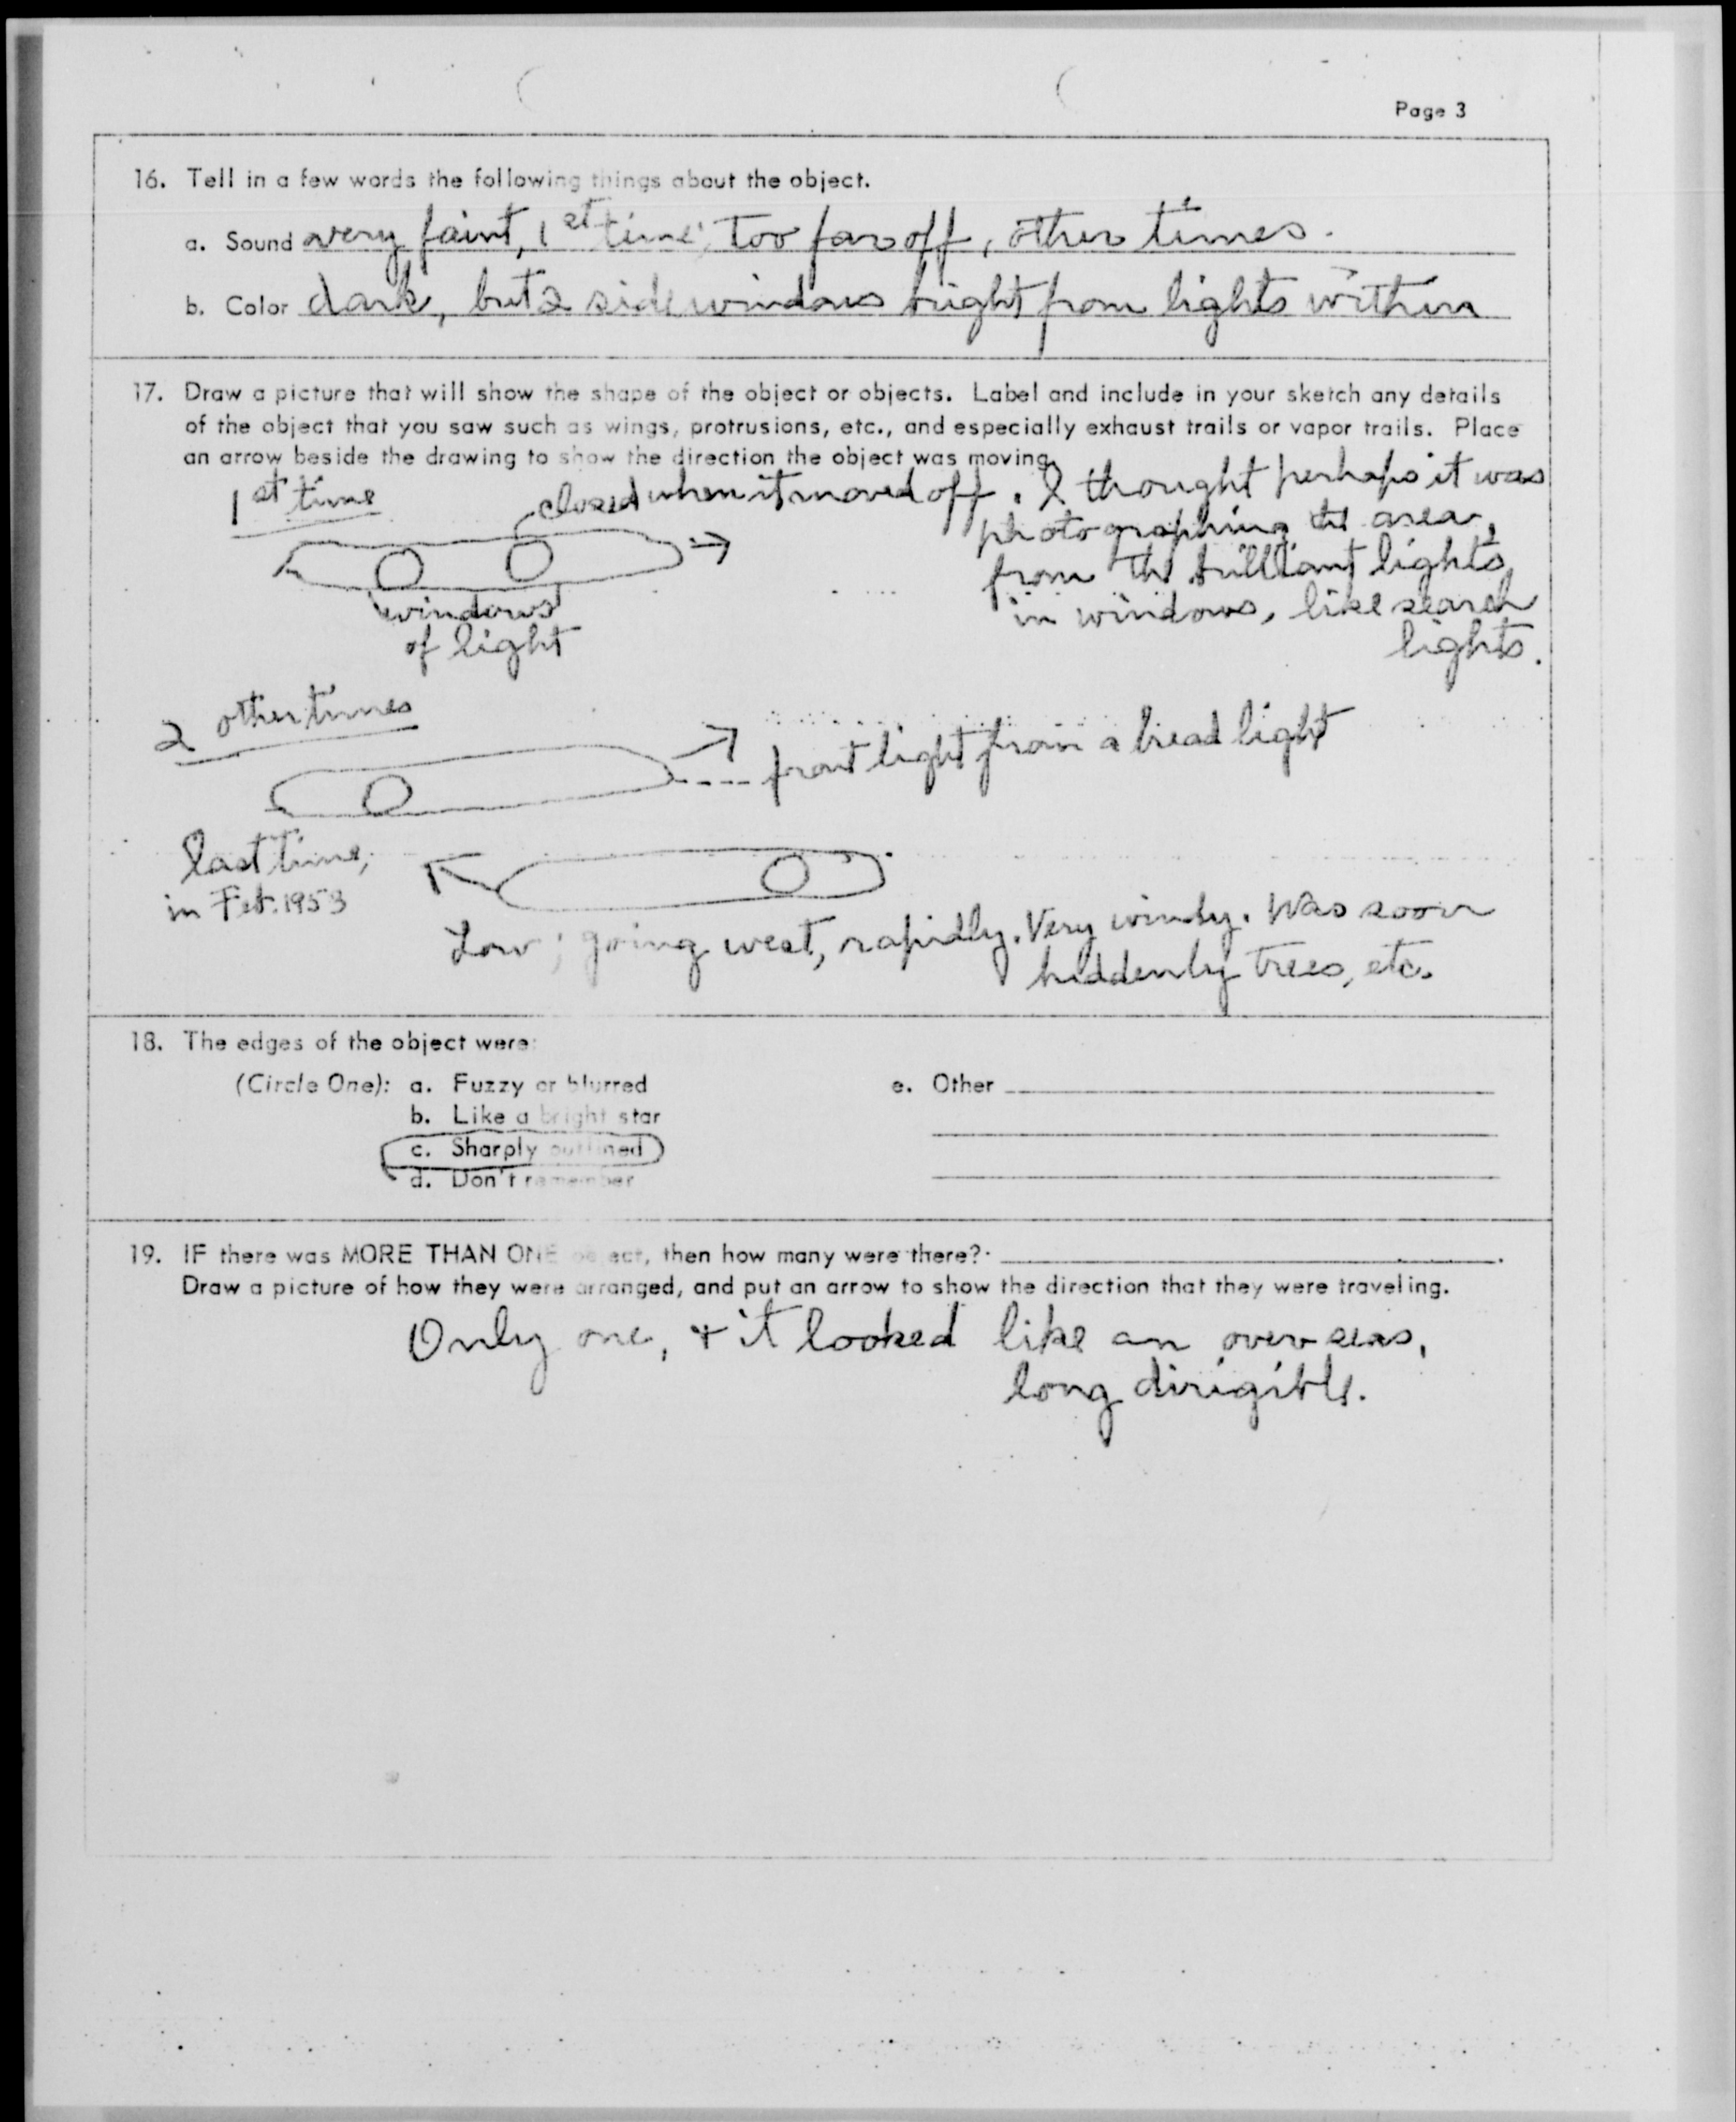 Page 3
16. Tell in a few words the following things about the object.
a. Sound very faint, 1st time; too far off, other times.
b. Color dark, but 2 side windows bright from lights within
17. Draw a picture that will show the shape of the object or objects. Label and include in your sketch any details
of the object that you saw such as wings, protrusions, etc., and especially exhaust trails or vapor trails. Place
an arrow beside the drawing to show the direction the object was moving.
1st time
closed when it moved off. I thought perhaps it was
photographing the area,
from the brilliant lights
in windows, like search
lights.
windows
of light
2 other times
front light from a head light
last time,
in Feb. 1953
Low; going west, rapidly. Very windy. Was soon
hidden by trees, etc.
18. The edges of the object were:
(Circle One): a. Fuzzy or blurred
e. Other
b. Like a bright star
c. Sharply outlined
d. Don't remember
19. IF there was MORE THAN ONE object, then how many were there?
Draw a picture of how they were arranged, and put an arrow to show the direction that they were traveling.
Only one, & it looked like an overseas,
long dirigible.